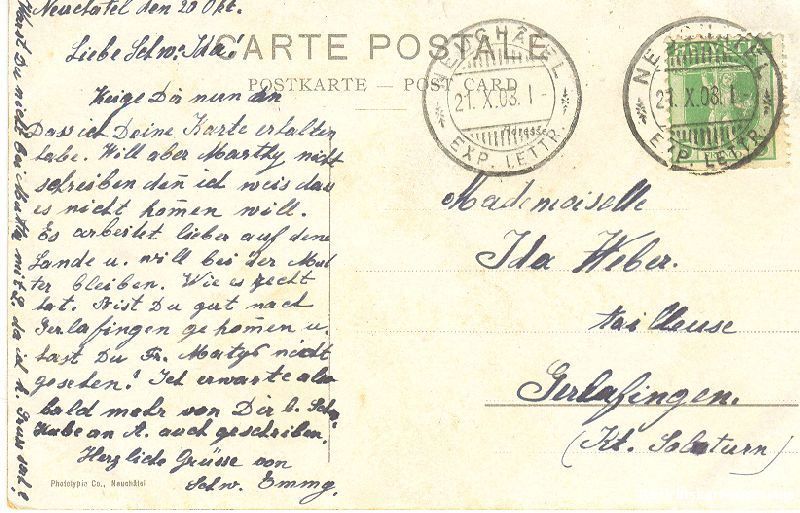 Neuchatel den 20 Okt.
Liebe Schw. Ida!
CARTE POSTALE
POSTKARTE — POST CARD
Zeige Dir nun an
Dass ich Deine Karte erhalten
habe. Will aber Marthy nicht
schreiben den̄ ich weis das
es nicht kom̄en will.
Es arbeitet lieber auf dene
Lande u. will bei der Mut
ter bleiben. Wie es recht
hat. Bist Du gut nach
Gerlafingen gekom̄en u.
hast Du Fr. Matys nicht
gesehen! Ich erwarte also
bald mehr von Dir l. Schw.
Habe an A. auch geschrieben.
Herzliche Grüsse von
Schw. Emmy.
Warst Du nicht bei
mit
da ich
Photolypie Co., Neuchâtel
NEUCHÂTEL
21. X. 08. I -
EXP. LETTR.
Adresse
NEUCHÂTEL
21. X. 08. I
EXP. LETTR.
HELVETIA
Mademoiselle
Ida Weber.
tailleuse
Gerlafingen.
(Kt. Soloturn)